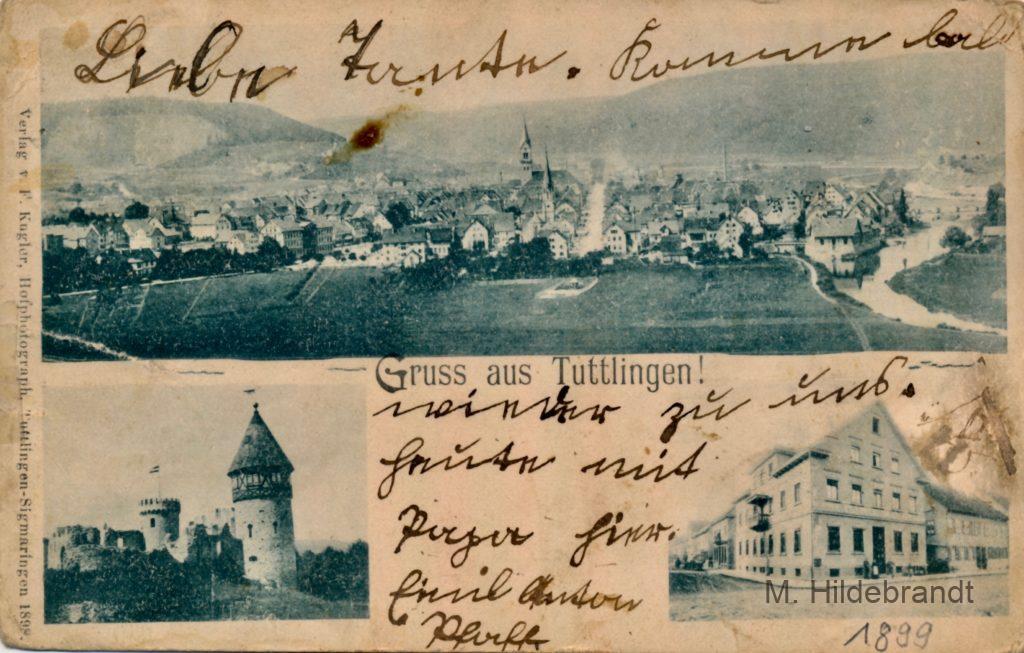 Liebe Tante. Komme bald
Gruss aus Tuttlingen!
wieder zu uns.
heute mit
Papa hier.
Emil Anton
Pfaff
M. Hildebrandt
1899
Verlag v. F. Kugler, Hofphotograph. Tuttlingen-Sigmaringen 1898.